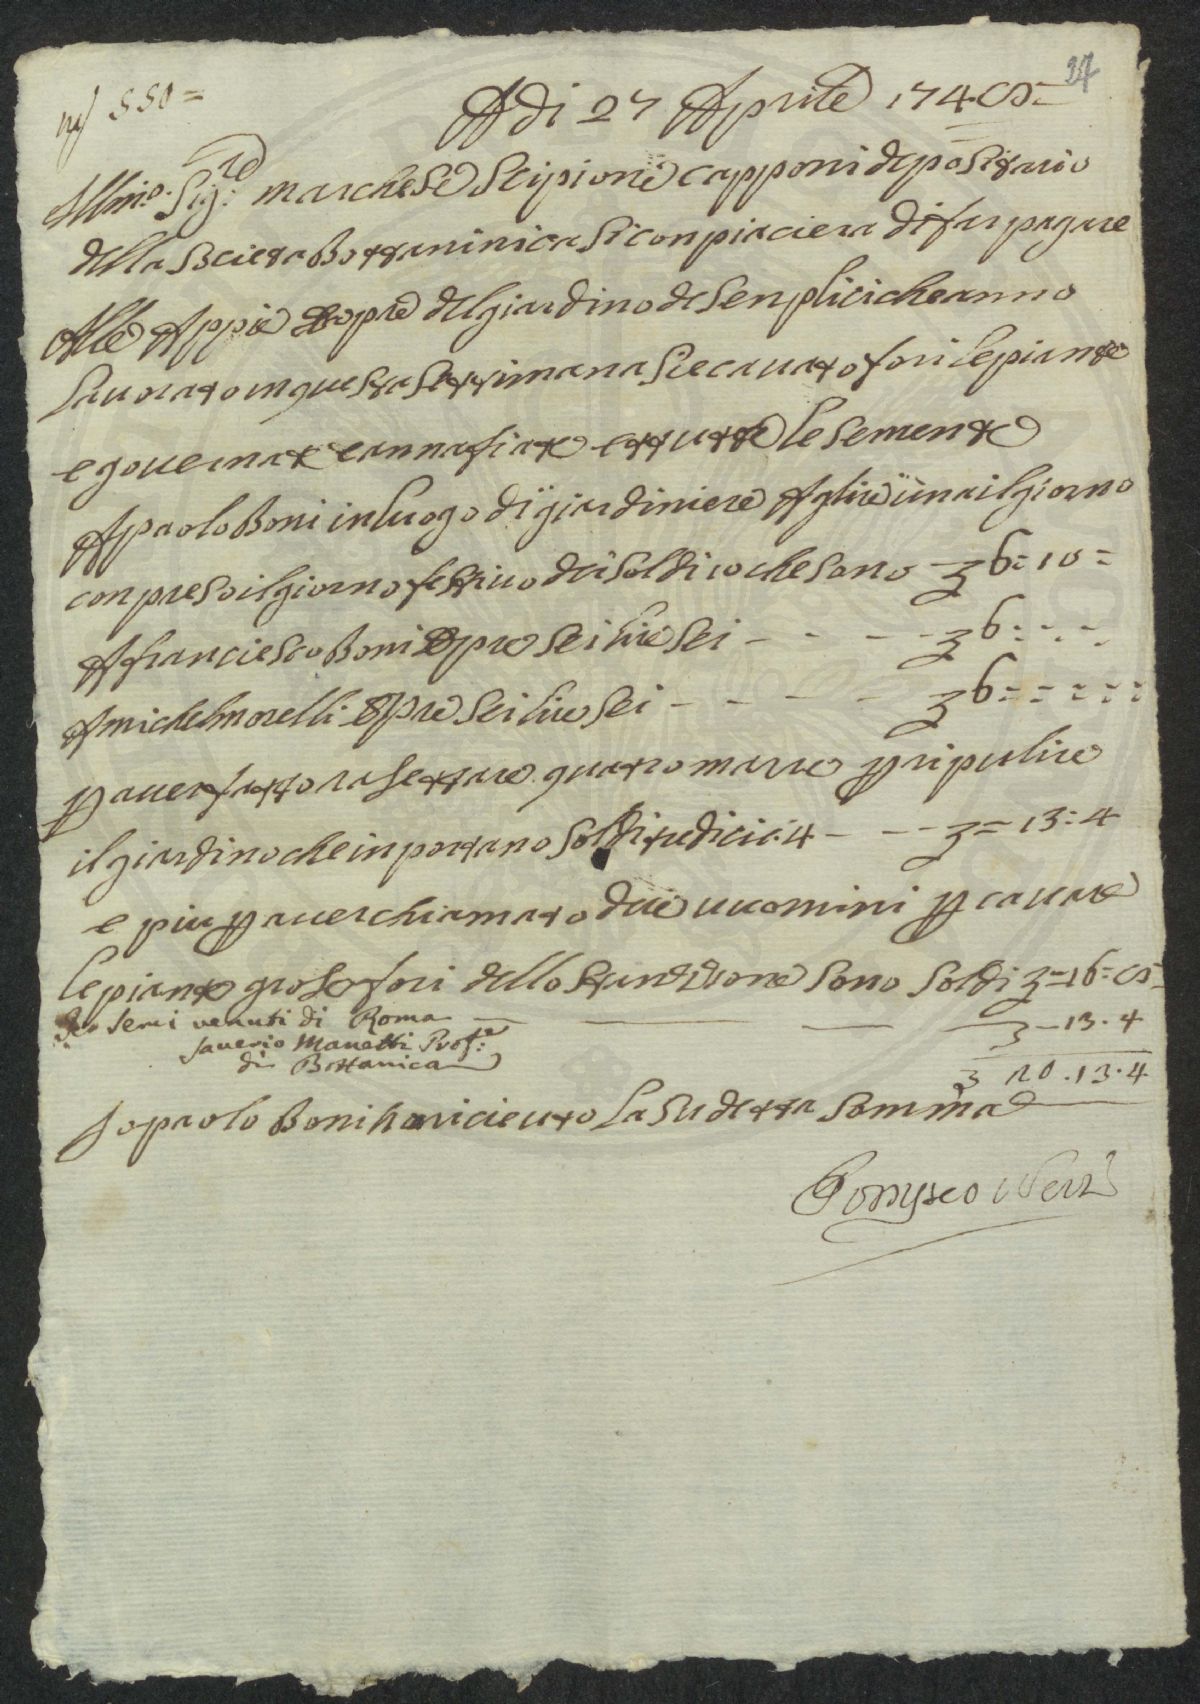 27
N 550 =
A Di 27 Aprile 174
Illmo. Sig:re Marchese Scipione Capponi depositario
della Societa Bottaninica si conpiaciera di far pagare
Alle Appie opre del giardino de senplici che anno
lavorato in questa settimana si e cavato fori le piante
e governate e annafiate e ttutte le semente
A paolo Boni in luogo di giardiniere A lire una il giorno
conpreso il giorno festivo dei soldi 10 che sono 6 = 10 =
A franciesco Boni opre sei lire sei - - - - 6 : - -
A michel morelli opre sei lire sei - - - - 6 = = = = =
p aver fatto rasettare quatro marre p ripulire
il giardino che inportano soldi tredici e 4 - - - = 13 : 4
e piu p aver chiamato due uuomini p cavare
le piante grose fori dello stanzone sono soldi = 16 =
semi venuti di Roma - 13 . 4
Saverio Manetti Prof:e
di Bottanica
20 . 13 . 4
Io paolo Boni ho ricieuto la sudetta somma
Neri